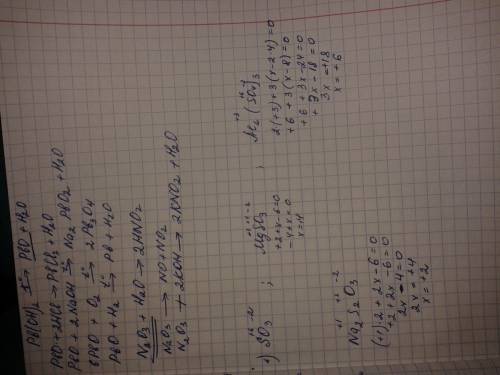 Pb(OH)2 t°→ PbO + H2O
PbO + 2HCl → PbCl2 + H2O
PbO + 2NaOH t°→ Na2PbO2 + H2O
6PbO + O2 t°→ 2Pb3O4
PbO + H2 t°→ Pb + H2O
N2O3 + H2O → 2HNO2
N2O3 → NO + NO2
N2O3 + 2KOH → 2KNO2 + H2O
1) SO3 ; MgSO3 ; Al2(SO4)3
+6 -2
+2 +4 -2
+2 + x - 6 = 0
- 4 + x = 0
x = +4
+3 +6 -2
2(+3) + 3(x - 2·4) = 0
+6 + 3(x - 8) = 0
+6 + 3x - 24 = 0
+ 3x - 18 = 0
3x = +18
x = +6
+1 +2 -2
Na2S2O3
(+1)·2 + 2x - 6 = 0
+2 + 2x - 6 = 0
2x - 4 = 0
2x = +4
x = +2